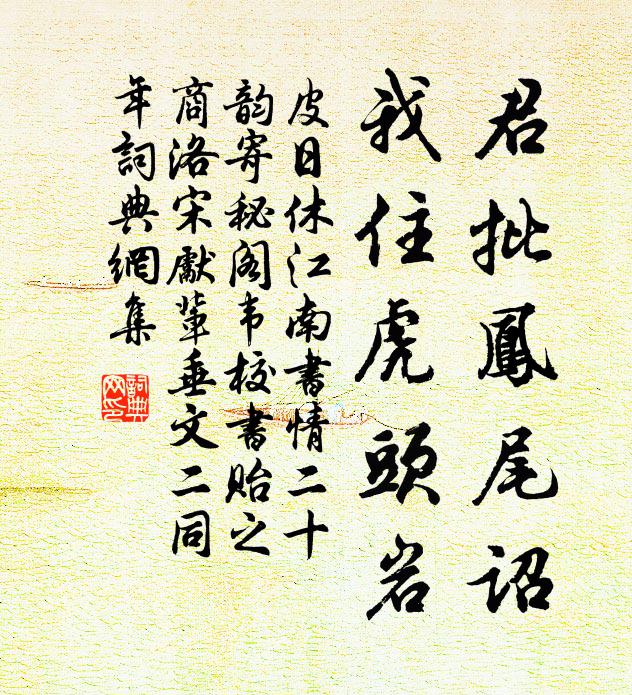 君批鳳尾詔
我住虎頭岩
皮日休江南書情二十
韵寄秘阁韦校書贻之
商洛宋獻輩垂文二同
年詞典網集
詞典
网印